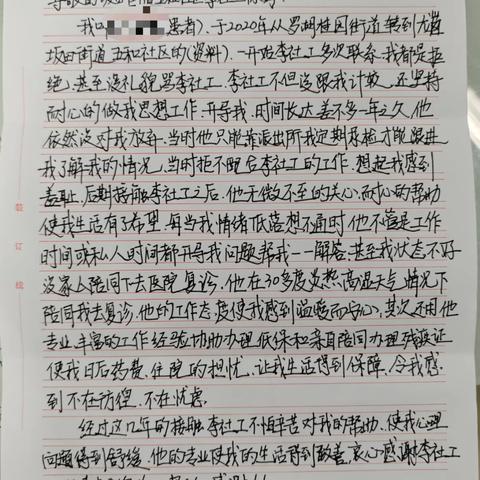 我叫 患者),于2020年从罗湖桂园街道转到龙岗
坂田街道五和社区的(资料).一开始李社工多次联系.我都是拒
绝,甚至没礼貌骂李社工.李社工不但没跟我计较.还坚持
耐心的做我思想工作.开导我.时间长达差不多一年之久.他
依然没对我放弃.当时他只能靠派出所我定期尿检才能跟进
我了解我的情况.当时拒不配合李社工的工作.想起我感到
羞耻.后期接触李社工之后.他无微不至的关心.耐心的帮助
使我生活有了希望.每当我情绪低落想不通时他不管是工作
时间或私人时间都开导我问题帮我一一解答.甚至我状态不好
没家人陪同下去医院复诊.他在30多度炎热高温天气情况下
陪同我去复诊.他的工作态度使我感到温暖而安心.其次还用他
专业.丰富的工作经验协助办理低保和亲自陪同办理残疾证
使我日后药费.住院的担忧.让我生活得到保障.令我感
到不在彷徨.不在忧虑.
经过这几年的接触李社工不怕辛苦对我的帮助.使我心理
问题得到舒缓.他的专业使我的生活得到改善.衷心感谢李社工
装
订
线